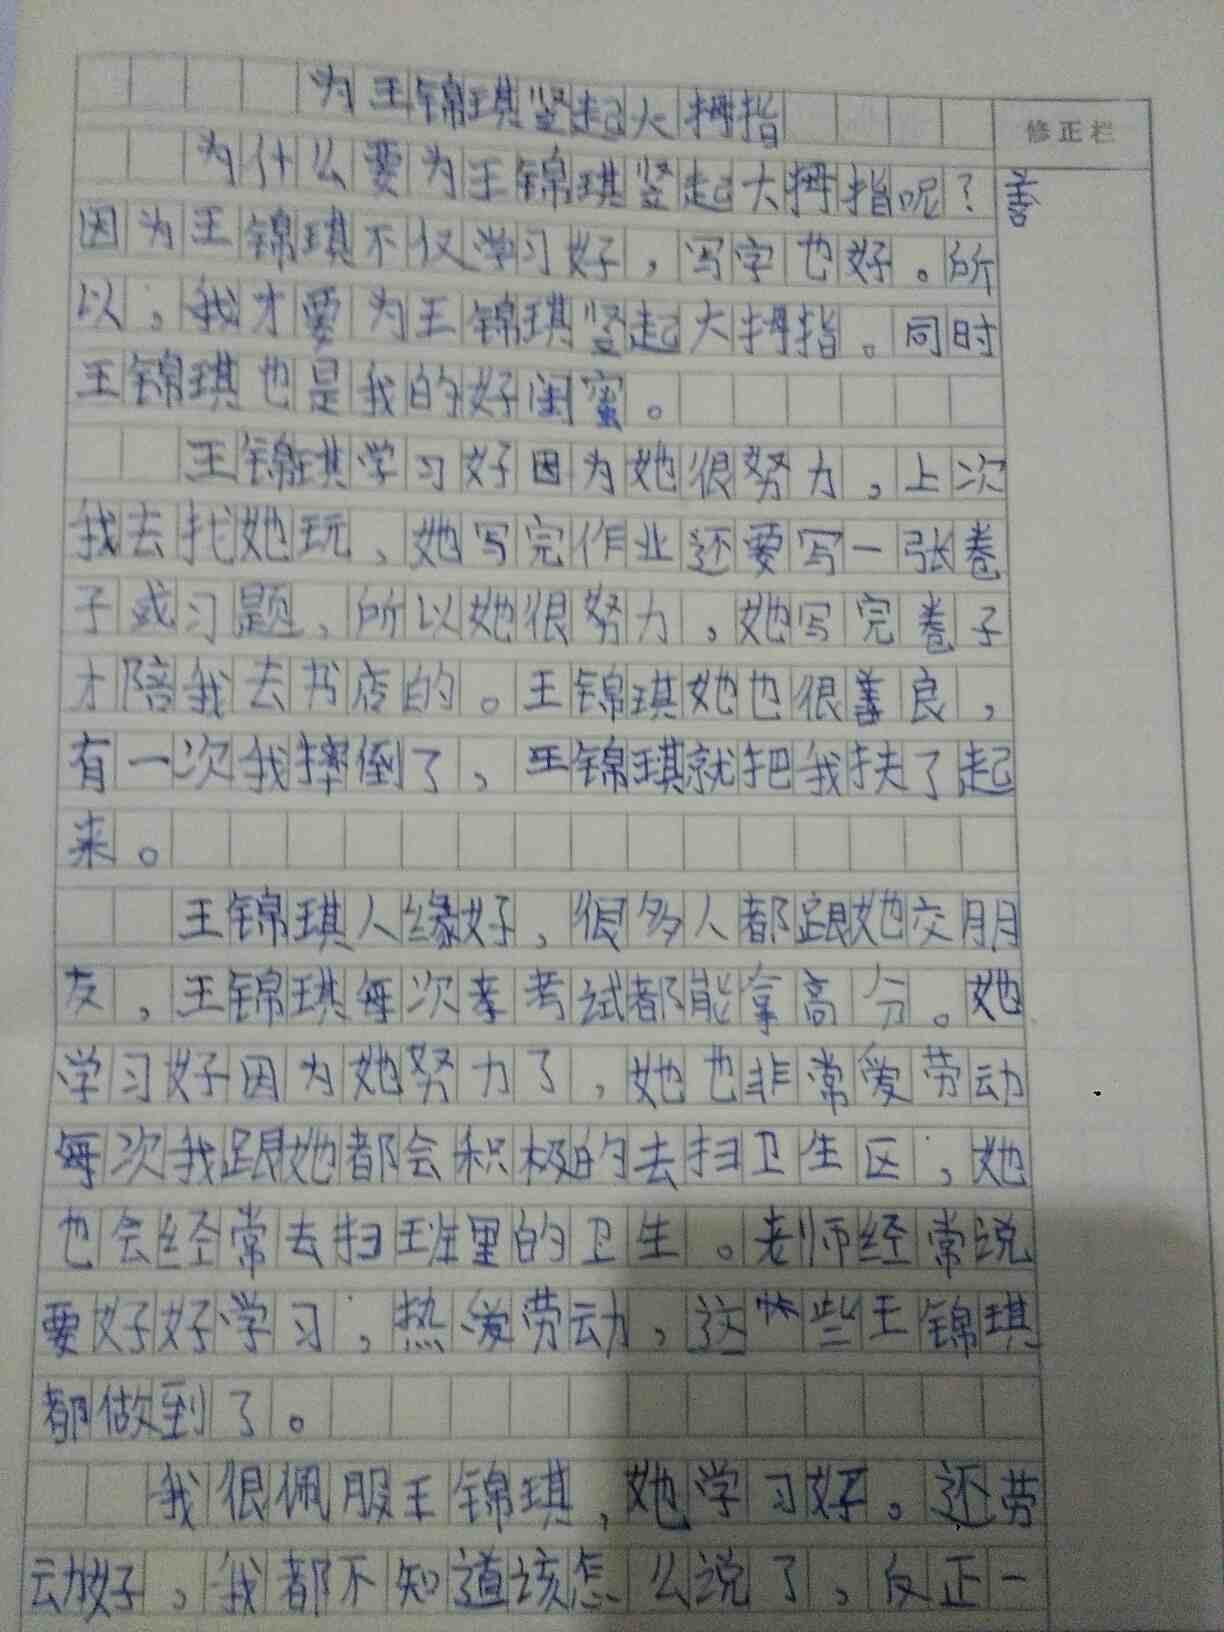 为王锦琪竖起大拇指
修正栏
为什么要为王锦琪竖起大拇指呢？
善
因为王锦琪不仅学习好，写字也好。所
以，我才要为王锦琪竖起大拇指。同时
王锦琪也是我的好闺蜜。
王锦琪学习好因为她很努力，上次
我去找她玩，她写完作业还要写一张卷
子或习题，所以她很努力，她写完卷子
才陪我去书店的。王锦琪她也很善良，
有一次我摔倒了，王锦琪就把我扶了起
来。
王锦琪人缘好，很多人都跟她交朋
友，王锦琪每次考试都能拿高分。她
学习好因为她努力了，她也非常爱劳动
每次我跟她都会积极的去扫卫生区，她
也会经常去扫班里的卫生。老师经常说
要好好学习，热爱劳动，这些王锦琪
都做到了。
我很佩服王锦琪，她学习好。还劳
动好，我都不知道该怎么说了，反正一